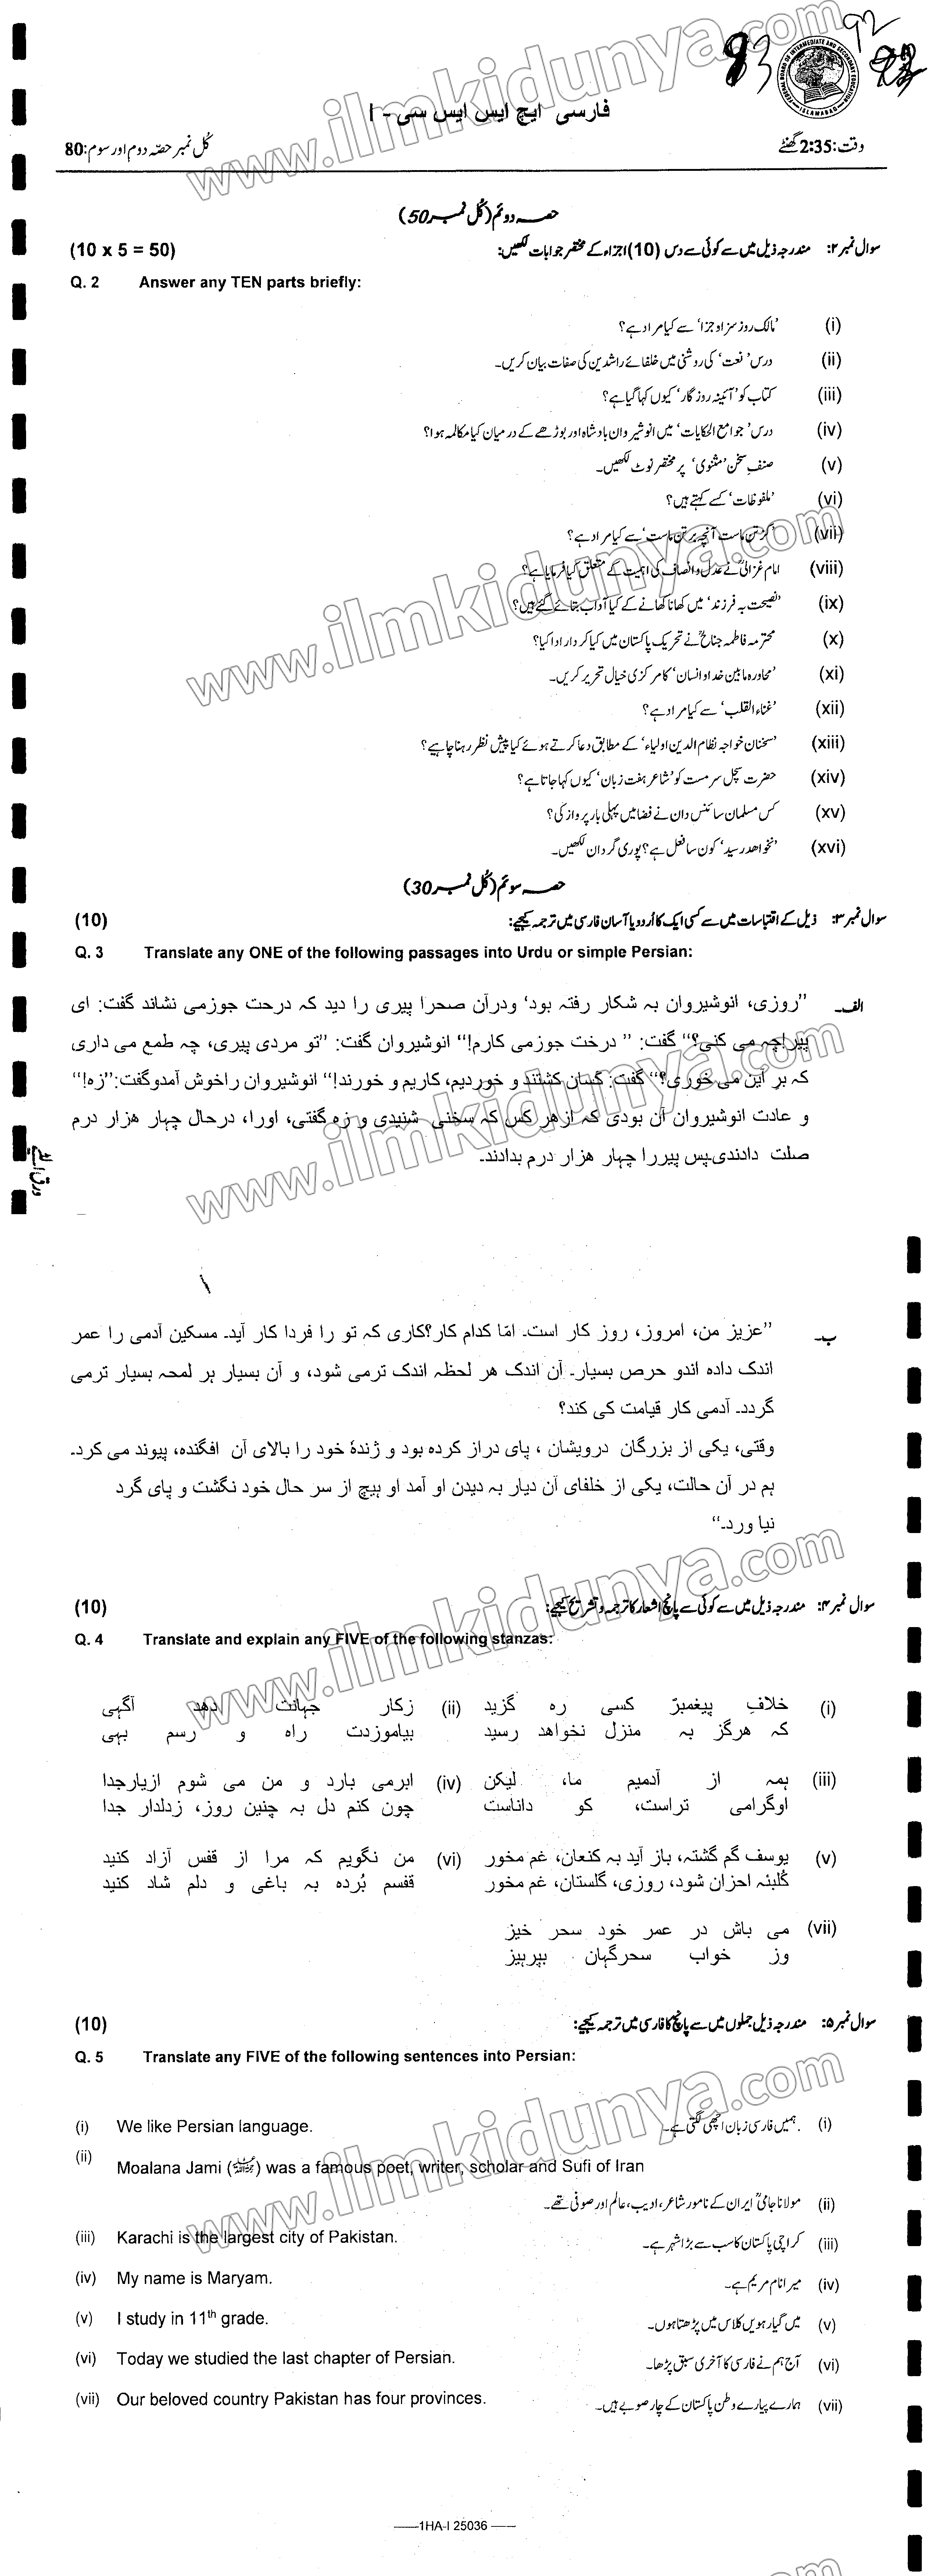 83
92
FEDERAL BOARD OF INTERMEDIATE AND SECONDARY EDUCATION
ISLAMABAD
فارسی ایچ ایس ایس سی - I
وقت: 2:35 گھنٹے
کُل نمبر حصّہ دوم اور سوم: 80
حصہ دوئم (کُل نمبر 50)
سوال نمبر ۲: مندرجہ ذیل میں سے کوئی سے دس (10) اجزاء کے مختصر جوابات لکھیں: (10 x 5 = 50)
Q. 2 Answer any TEN parts briefly:
(i) 'مالک روز سزا و جزا' سے کیا مراد ہے؟
(ii) درس 'نعت' کی روشنی میں خلفائے راشدین کی صفات بیان کریں۔
(iii) کتاب کو 'آئینہ روزگار' کیوں کہا گیا ہے؟
(iv) درس 'جوامع الحکایات' میں انوشیروان بادشاہ اور بوڑھے کے درمیان کیا مکالمہ ہوا؟
(v) صنفِ سخن 'مثنوی' پر مختصر نوٹ لکھیں۔
(vi) 'ملفوظات' کسے کہتے ہیں؟
(vii) 'گزشتن ماست آنچہ بر تن ماست' سے کیا مراد ہے؟
(viii) امام غزالیؒ نے عدل و انصاف کی اہمیت کے متعلق کیا فرمایا ہے؟
(ix) 'نصیحت بہ فرزند' میں کھانا کھانے کے کیا آداب بتائے گئے ہیں؟
(x) محترمہ فاطمہ جناحؒ نے تحریک پاکستان میں کیا کردار ادا کیا؟
(xi) 'محاورہ مابین خدا و انسان' کا مرکزی خیال تحریر کریں۔
(xii) 'غناء القلب' سے کیا مراد ہے؟
(xiii) 'سخنان خواجہ نظام الدین اولیاء' کے مطابق دعا کرتے ہوئے کیا پیش نظر رہنا چاہیے؟
(xiv) حضرت سچل سرمست کو 'شاعر ہفت زبان' کیوں کہا جاتا ہے؟
(xv) کس مسلمان سائنس دان نے فضا میں پہلی بار پرواز کی؟
(xvi) 'نخواھد رسید' کون سا فعل ہے؟ پوری گردان لکھیں۔
حصہ سوئم (کُل نمبر 30)
سوال نمبر ۳: ذیل کے اقتباسات میں سے کسی ایک کا اُردو یا آسان فارسی میں ترجمہ کیجیے: (10)
Q. 3 Translate any ONE of the following passages into Urdu or simple Persian:
الف۔ ’’روزی، انوشیروان بہ شکار رفتہ بود‘ ودرآن صحرا پیری را دید کہ درحت جوزمی نشاند گفت: ای
پیراچہ می کنی؟‘‘ گفت: ’’ درخت جوزمی کارم!‘‘ انوشیروان گفت: ’’تو مردی پیری، چہ طمع می داری
کہ بر این می خوری؟‘‘ گفت: کسان کشتند و خوردیم، کاریم و خورند!‘‘ انوشیروان راخوش آمدوگفت:’’زہ!‘‘
و عادت انوشیروان آن بودی کہ ازھر کس کہ سخنی شنیدی و زہ گفتی، اورا، درحال چہار ھزار درم
صلت دادندی۔پس پیررا چہار ھزار درم بدادند۔
ورق الٹیے
ب۔ ’’عزیز من، امروز، روز کار است۔ امّا کدام کار؟کاری کہ تو را فردا کار آید۔ مسکین آدمی را عمر
اندک دادہ اندو حرص بسیار۔ آن اندک ھر لحظہ اندک ترمی شود، و آن بسیار ہر لمحہ بسیار ترمی
گردد۔ آدمی کار قیامت کی کند؟
وقتی، یکی از بزرگان درویشان ، پای دراز کردہ بود و ژندۂ خود را بالای آن افگندہ، پیوند می کرد۔
ہم در آن حالت، یکی از خلفای آن دیار بہ دیدن او آمد او ہیچ از سر حال خود نگشت و پای گرد
نیا ورد۔‘‘
سوال نمبر ۴: مندرجہ ذیل میں سے کوئی سے پانچ اشعار کا ترجمہ و تشریح کیجیے: (10)
Q. 4 Translate and explain any FIVE of the following stanzas:
(i) خلافِ پیغمبرؐ کسی رہ گزید
کہ ھرگز بہ منزل نخواھد رسید
(ii) زکار جہانت دھد آگہی
بیاموزدت راہ و رسم بہی
(iii) ہمہ از آدمیم ما، لیکن
اوگرامی تراست، کو داناست
(iv) ابرمی بارد و من می شوم ازیارجدا
چون کنم دل بہ چنین روز، زدلدار جدا
(v) یوسف گم گشتہ، باز آید بہ کنعان، غم مخور
کُلبئہ احزان شود، روزی، گلستان، غم مخور
(vi) من نگویم کہ مرا از قفس آزاد کنید
قفسم بُردہ بہ باغی و دلم شاد کنید
(vii) می باش در عمر خود سحر خیز
وز خواب سحرگہان بپرہیز
سوال نمبر ۵: مندرجہ ذیل جملوں میں سے پانچ کا فارسی میں ترجمہ کیجیے: (10)
Q. 5 Translate any FIVE of the following sentences into Persian:
(i) We like Persian language.
(i) ہمیں فارسی زبان اچھی لگتی ہے۔
(ii) Moalana Jami () was a famous poet, writer, scholar and Sufi of Iran
(ii) مولانا جامیؒ ایران کے نامور شاعر، ادیب، عالم اور صوفی تھے۔
(iii) Karachi is the largest city of Pakistan.
(iii) کراچی پاکستان کا سب سے بڑا شہر ہے۔
(iv) My name is Maryam.
(iv) میرا نام مریم ہے۔
(v) I study in 11th grade.
(v) میں گیارہویں کلاس میں پڑھتا ہوں۔
(vi) Today we studied the last chapter of Persian.
(vi) آج ہم نے فارسی کا آخری سبق پڑھا۔
(vii) Our beloved country Pakistan has four provinces.
(vii) ہمارے پیارے وطن پاکستان کے چار صوبے ہیں۔
——1HA-I 25036 ——
www.ilmkidunya.com
www.ilmkidunya.com
www.ilmkidunya.com
www.ilmkidunya.com
www.ilmkidunya.com